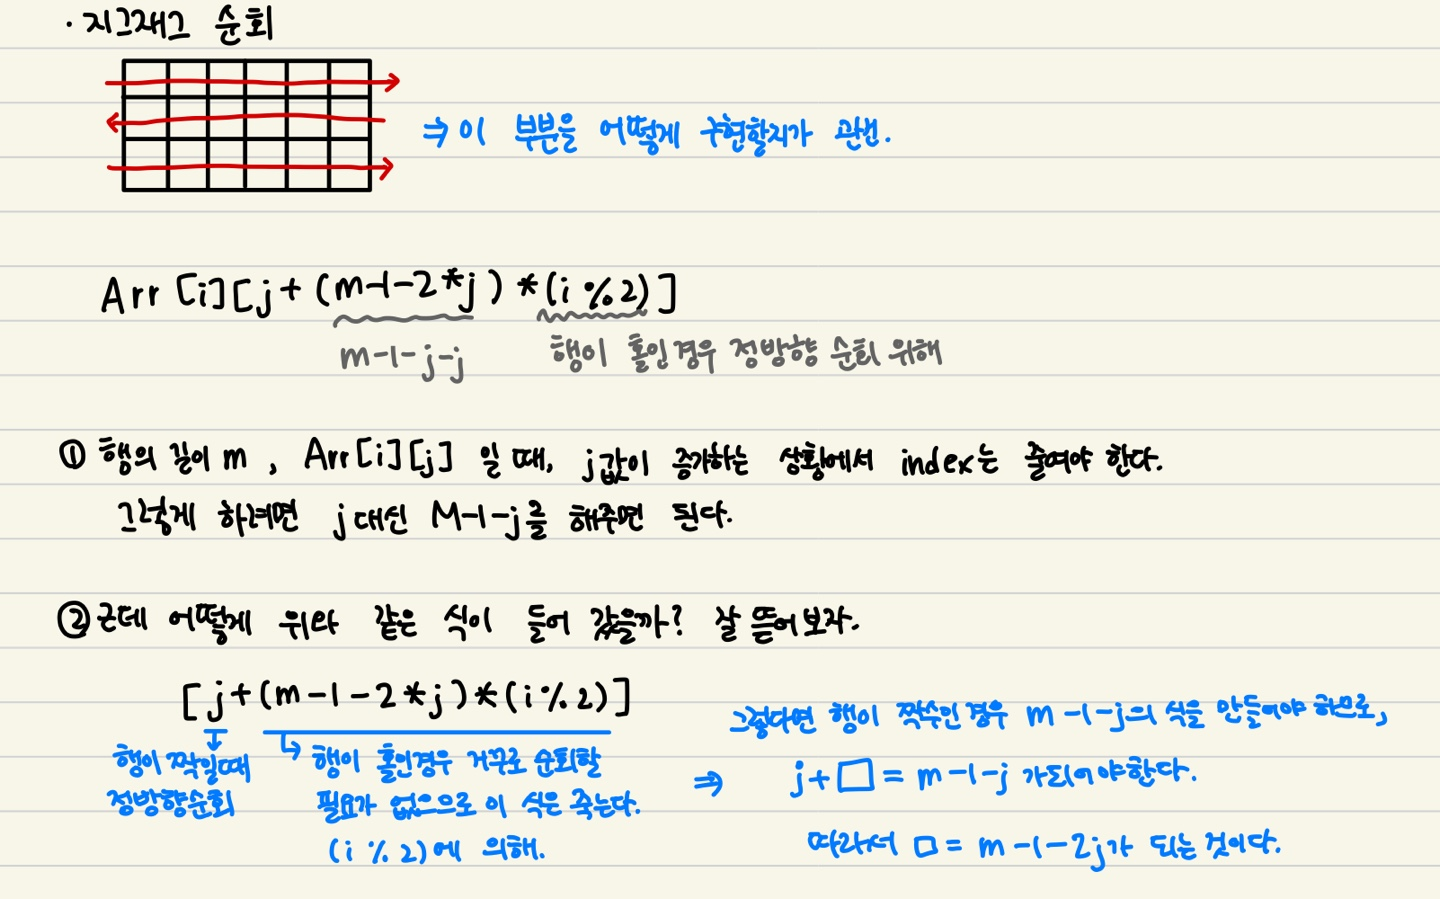 · 지그재그 순회
⇒ 이 부분을 어떻게 구현할지가 관건.
Arr [i][j + (m-1-2*j) * (i%2)]
m-1-j-j
행이 홀인경우 정방향 순회 위해
① 행의 길이 m , Arr[i][j] 일 때, j값이 증가하는 상황에서 index는 줄여야 한다.
그렇게 하려면 j대신 M-1-j를 해주면 된다.
② 근데 어떻게 위와 같은 식이 들어 갔을까? 잘 뜯어보자.
[j+(m-1-2*j)*(i%2)]
행이 짝일때
정방향순회
↳ 행이 홀인경우 거꾸로 순회할
필요가 없으므로 이 식은 죽는다.
(i % 2)에 의해.
그렇다면 행이 짝수인 경우 m-1-j의 식을 만들어야 하므로,
⇒ j+□ = m-1-j 가되어야한다.
따라서 □= m-1-2j가 되는 것이다.